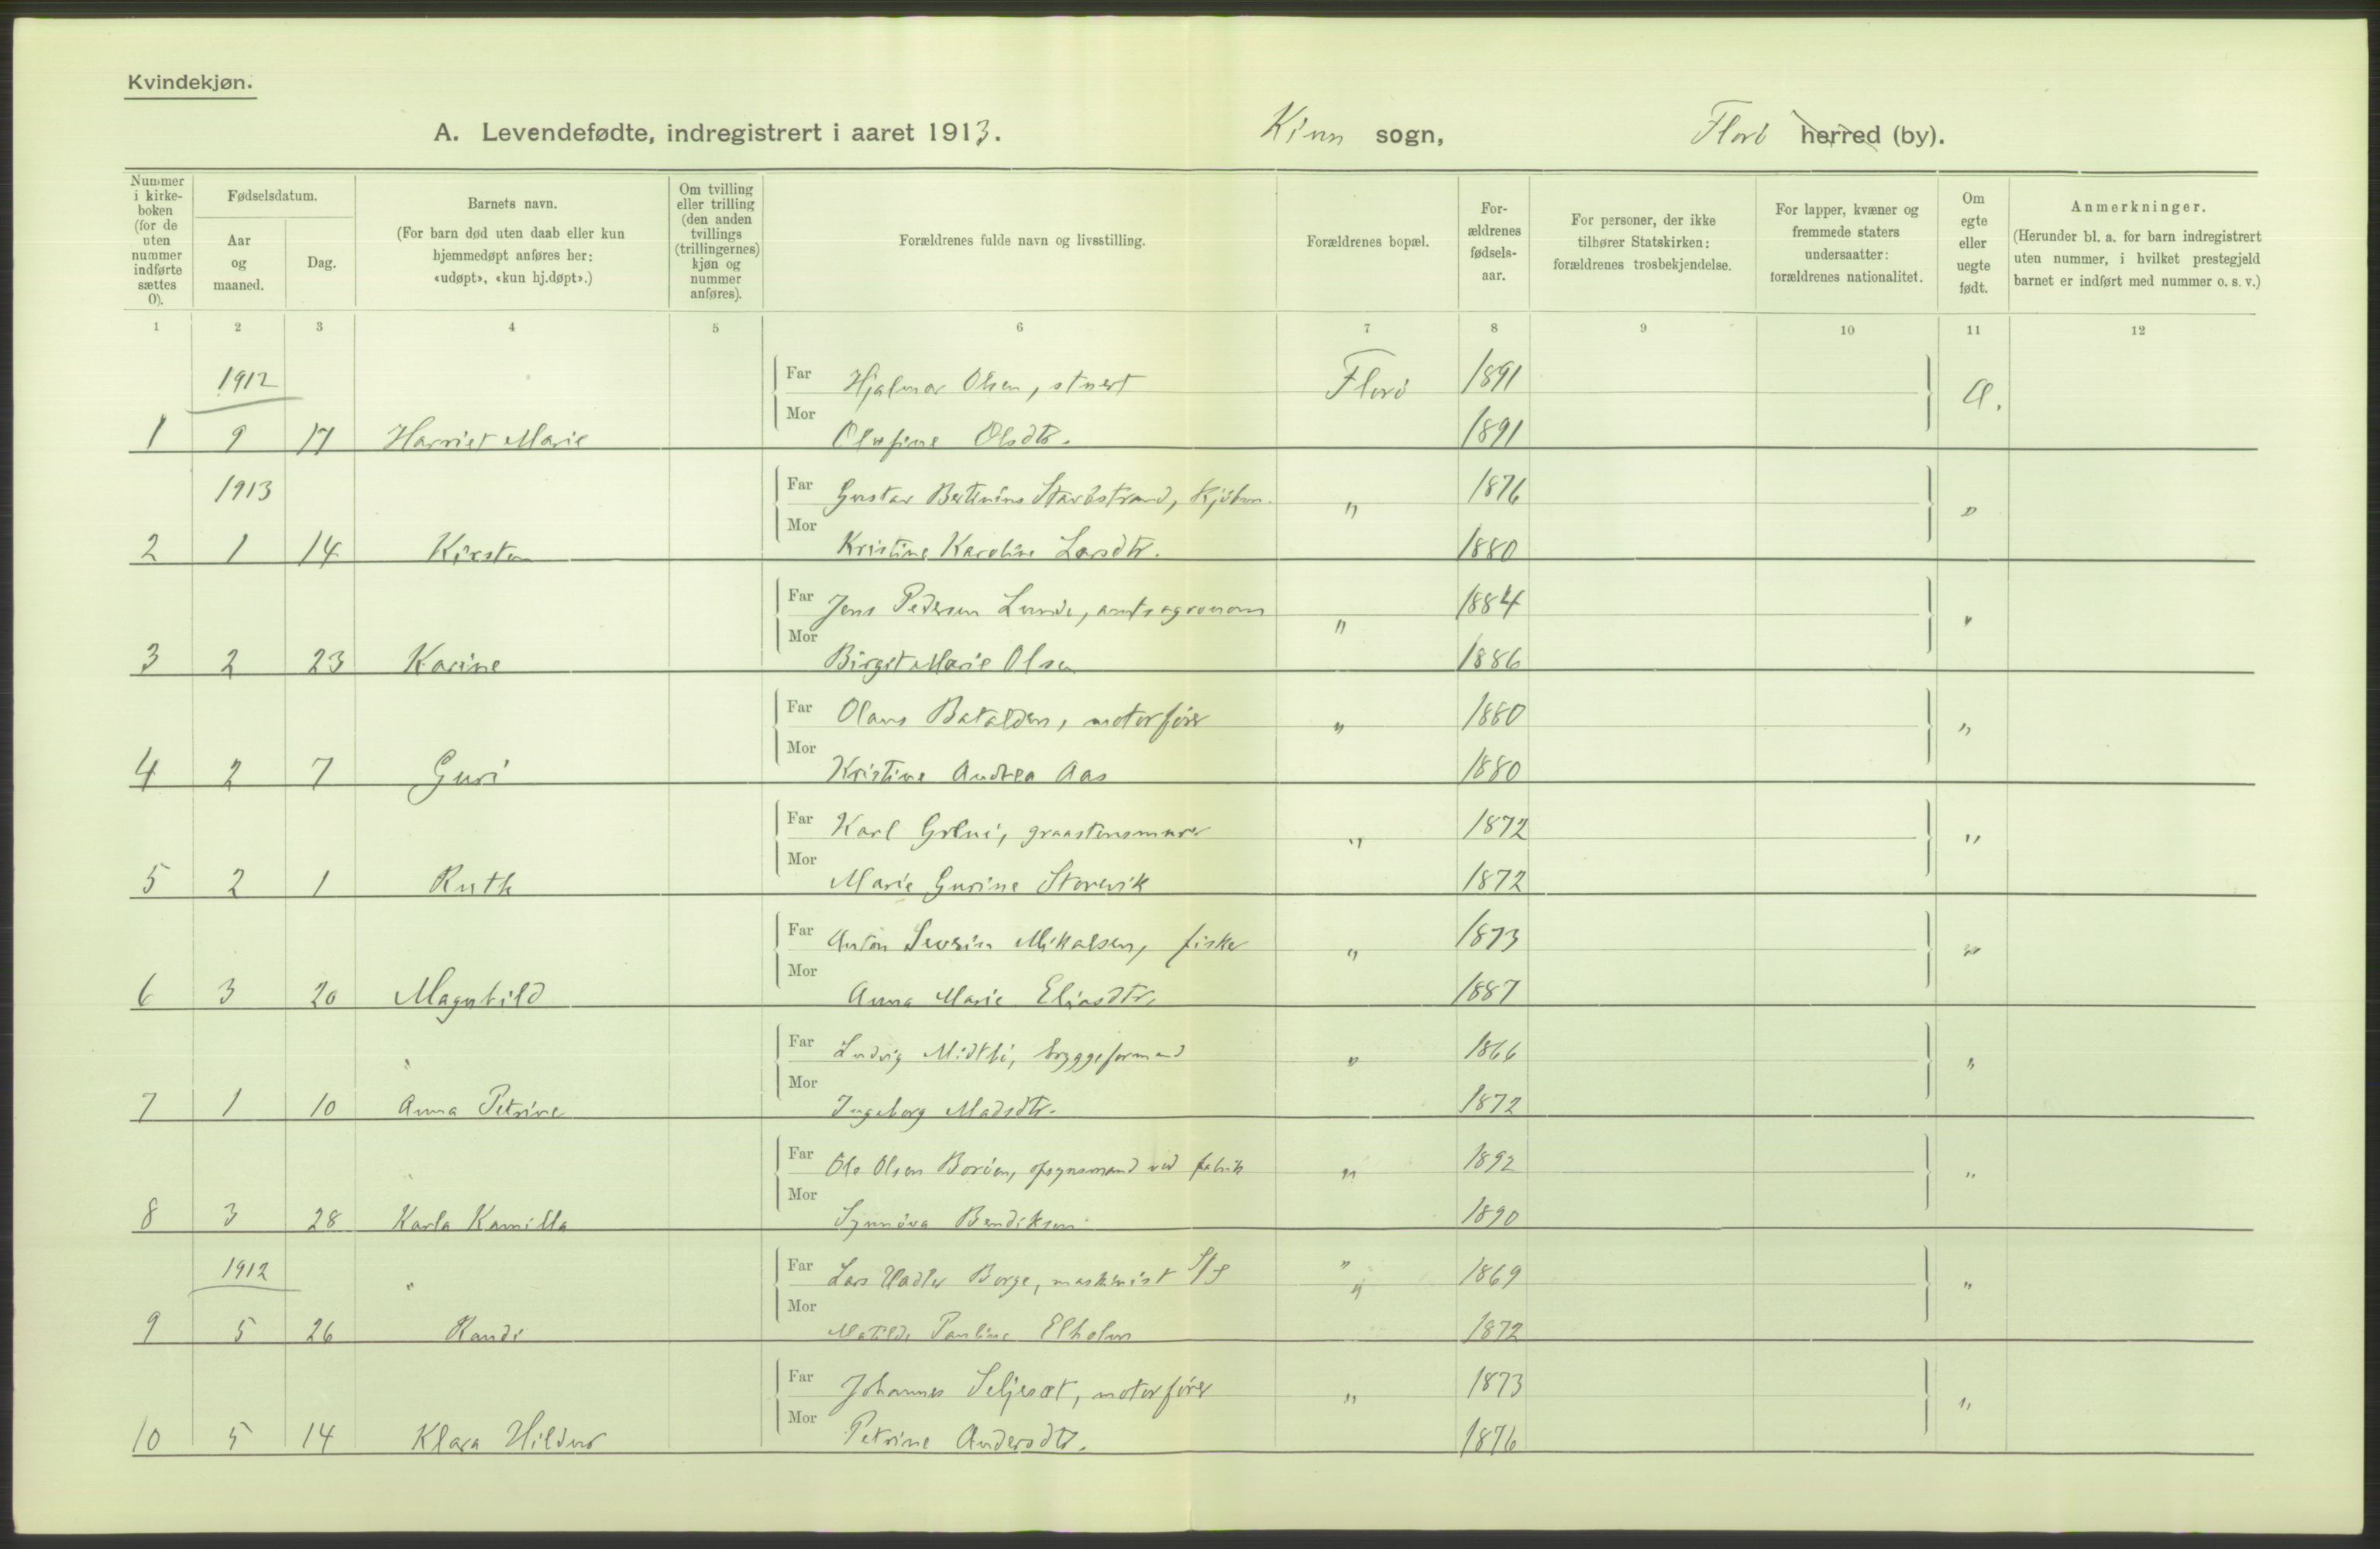 Kvindekjøn.
A. Levendefødte, indregistrert i aaret 1913. Kinn sogn, Florö herred (by).
Nummer i kirkeboken (for de uten nummer indførte sættes 0).
Fødselsdatum.
Aar og maaned.
Dag.
Barnets navn.
(For barn død uten daab eller kun hjemmedøpt anføres her: «udøpt», «kun hj.døpt».)
Om tvilling eller trilling (den anden tvillings (trillingernes) kjøn og nummer anføres).
Forældrenes fulde navn og livsstilling.
Forældrenes bopæl.
Forældrenes fødselsaar.
For personer, der ikke tilhører Statskirken: forældrenes trosbekjendelse.
For lapper, kvæner og fremmede staters undersaatter: forældrenes nationalitet.
Om egte eller uegte født.
Anmerkninger.
(Herunder bl. a. for barn indregistrert uten nummer, i hvilket prestegjeld barnet er indført med nummer o. s. v.)
1 2 3 4 5 6 7 8 9 10 11 12
1912 Far Hjalmar Olsen, stuert Florö 1891
1 9 17 Harriet Marie Mor Olufine Olsdtr. 1891
1913 Far Gustav Bertinius Stavöstrand, Kjöbm. " 1876 "
2 1 14 Kirsten Mor Kristine Karoline Larsdtr. 1880
Far Jens Pedersen Lunde, amtsagronom " 1884 "
3 2 23 Karine Mor Birgit Marie Olsen 1886
Far Olaus Batalden, motorförer " 1880 "
4 2 7 Guri Mor Kristine Andrea Aas 1880
Far Karl graastensmurer " 1872 "
5 2 1 Ruth Mor Marie Gurine Storevik 1872
Far Anton Severin Mikalsen, fisker " 1873 "
6 3 20 Magnhild Mor Anna Marie Eliasdtr. 1887
Far Ludvig Midtbö, bryggeformand " 1866 "
7 1 10 Anna Petrine Mor Ingeborg Madsdtr. 1872
Far Ole Olsen Boröen, opsynsmand ved fabrik " 1892 "
8 3 28 Karla Kamilla Mor Synnöva Bendiksen 1890
1912 Far Lars Borge, maskinist S/S " 1869 "
9 5 26 Randi Mor Matilde Pauline Elholm 1872
Far Johannes Seljeset, motorförer " 1873 "
10 5 14 Klara Hildur Mor Petrine Andersdtr. 1876